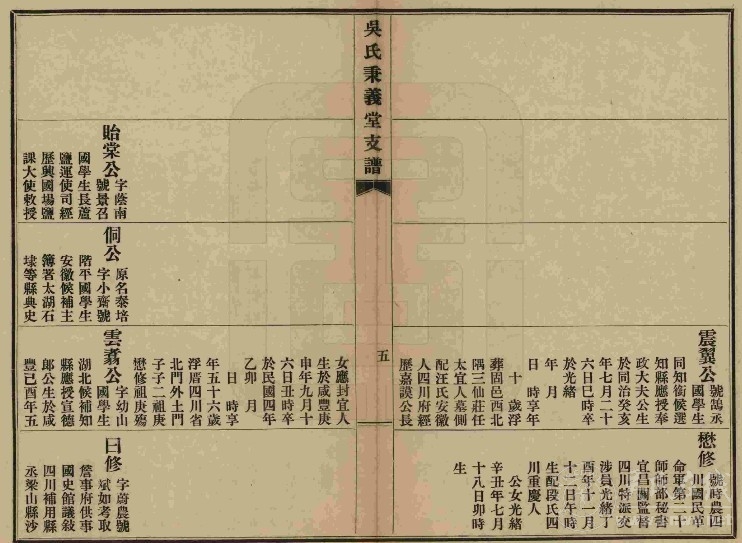 震翼公 號鵠丞
國學生
同知銜候選
知縣應授奉
政大夫公生
於同治癸亥
年七月二十
六日巳時卒
於光緒
年 月
日 時享年
十 歲浮
葬固邑西北
隅三仙莊任
太宜人墓側
配汪氏安徽
人四川府經
歷嘉謨公長
懋修 號時農四
川國民革
命軍第二十
師師部秘書
宜昌關監督
四川特派交
涉員光緒丁
酉年十一月
十二日午時
生配段氏四
川重慶人
公女光緒
辛丑年七月
十八日卯時
生
吳氏秉義堂支譜
五
貽棠公 字蔭南
號景召
國學生長蘆
鹽運使司經
歷興國場鹽
課大使敕授
侗公 原名泰培
字小齋號
階平國學生
安徽候補主
簿署太湖石
埭等縣典史
女應封宜人
生於咸豐庚
申年九月十
六日丑時卒
於民國四年
乙卯 月
日 時享
年五十六歲
浮厝四川省
北門外土門
子子二祖庚
懋修祖庚殤
雲翥公 字幼山
國學生
湖北候補知
縣應授宣德
郎公生於咸
豐己酉年五
曰修 字蔚農號
斌如考取
詹事府供事
國史館議敍
四川補用縣
丞梁山縣沙